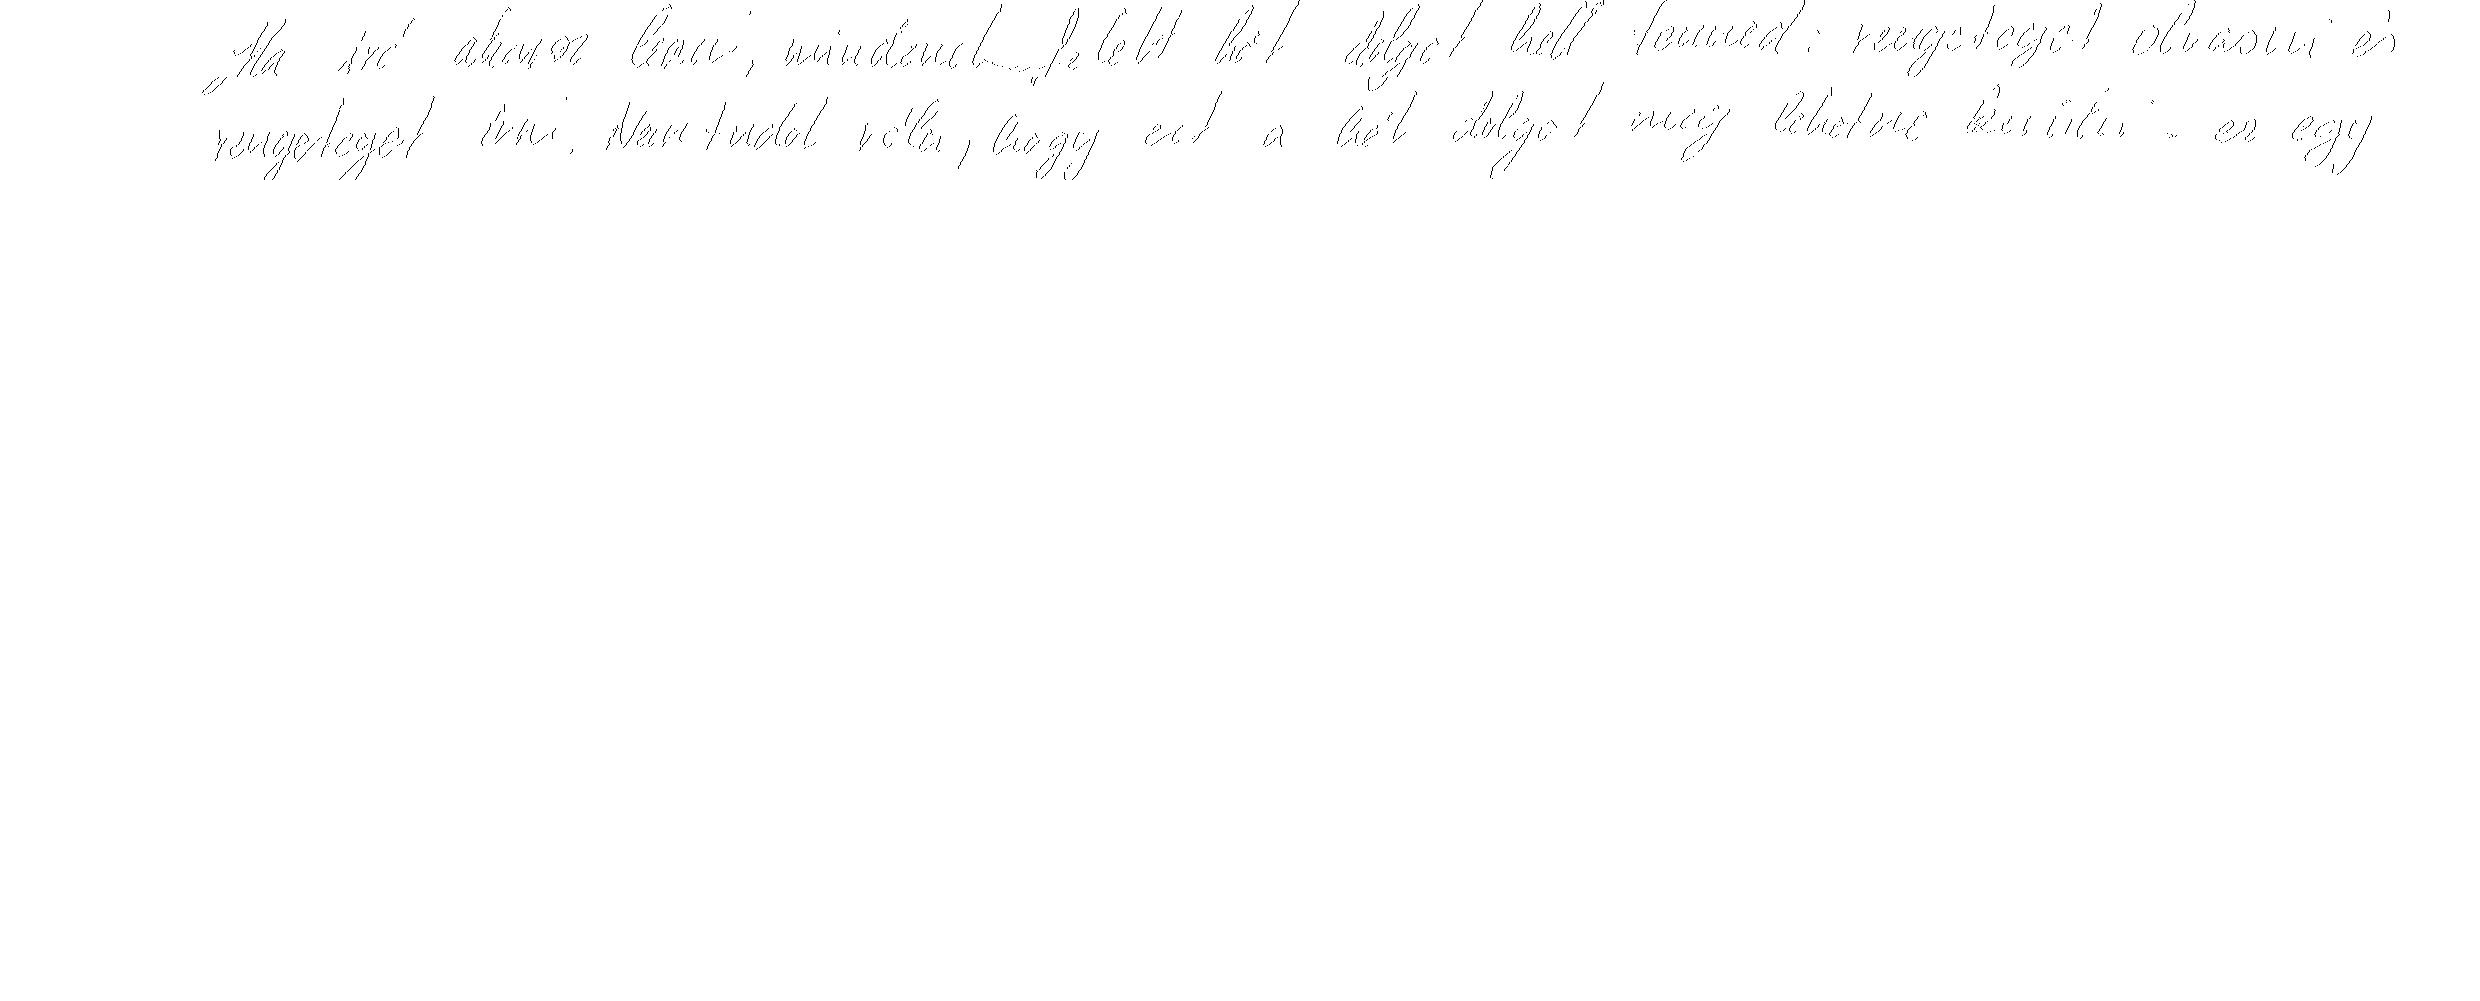 Ha író akarsz lenni, mindenek felett két dolgot kell tenned: rengeteget olvasni és
rengeteget írni. Nem tudok róla, hogy ezt a két dolgot meg lehetne kerülni - és egy